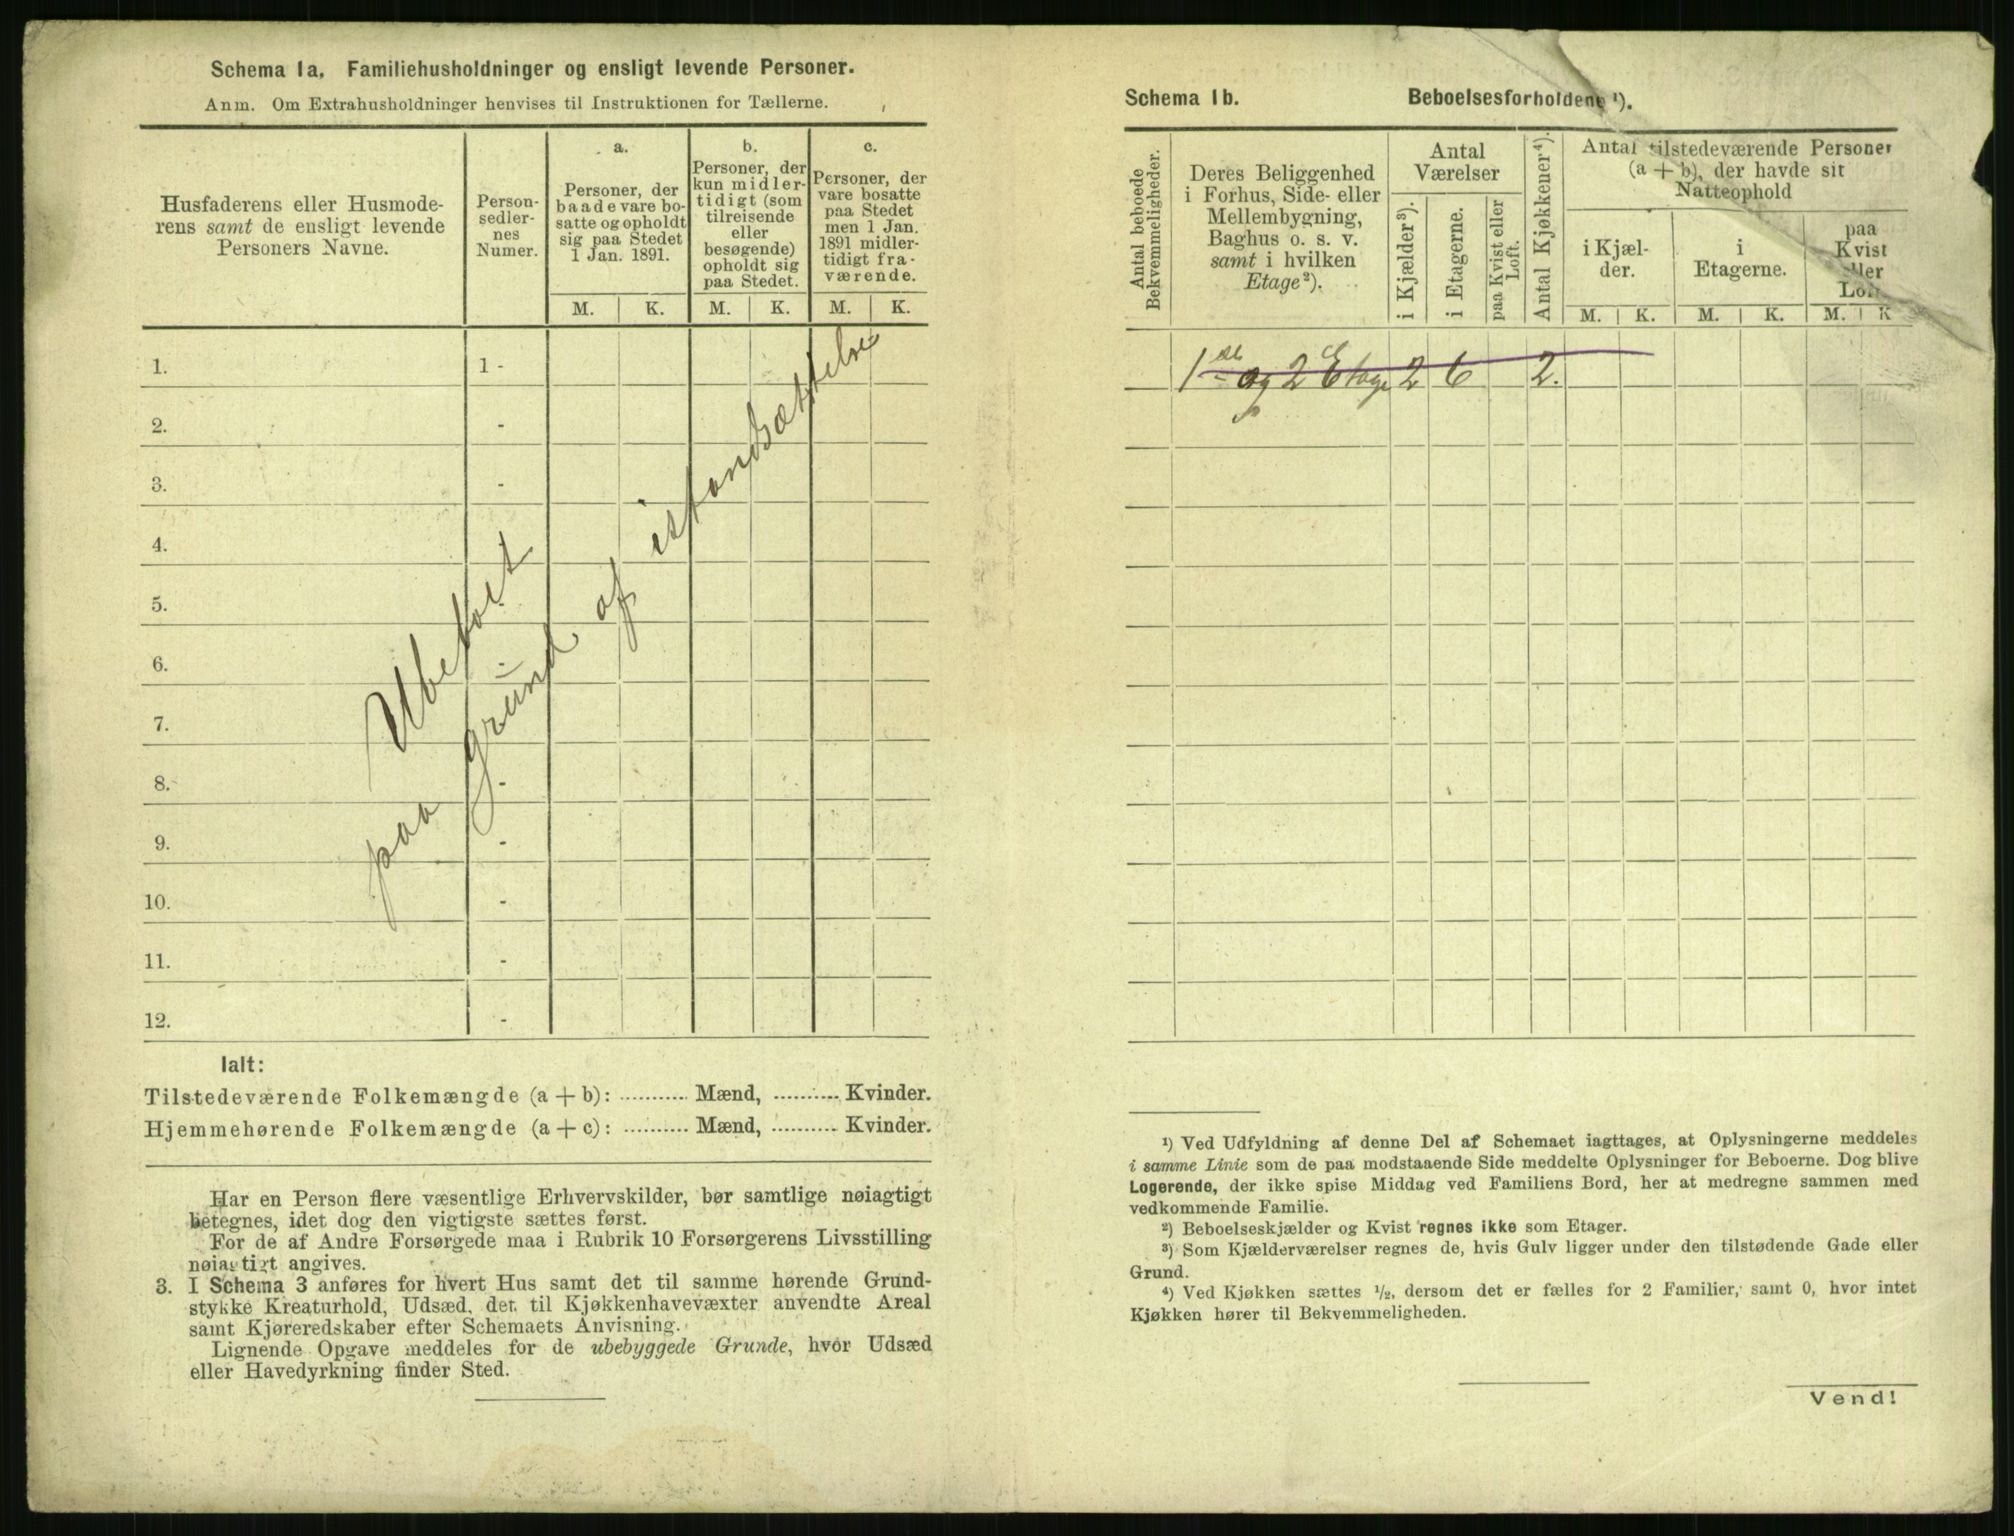 Schema 1a. Familiehusholdninger og ensligt levende Personer.
Anm. Om Extrahusholdninger henvises til Instruktionen for Tællerne.
Husfaderens eller Husmode-
rens samt de ensligt levende
Personers Navne.
Person-
sedler-
nes
Numer.
a.
Personer, der
baade vare bo-
satte og opholdt
sig paa Stedet
1 Jan. 1891.
b.
Personer, der
kun midler-
tidigt (som
tilreisende
eller
besøgende)
opholdt sig
paa Stedet.
c.
Personer, der
vare bosatte
paa Stedet
men 1 Jan.
1891 midler-
tidigt fra-
værende.
M. K. M. K. M. K.
1. 1 -
2. -
3. -
4.
5.
6. -
7.
8. -
9. -
10. -
11. -
12. -
Ubeboet
paa grund af istandsættelse
Ialt:
Tilstedeværende Folkemængde (a + b): ........... Mænd, ........... Kvinder.
Hjemmehørende Folkemængde (a + c): ........... Mænd, ........... Kvinder.
Har en Person flere væsentlige Erhvervskilder, bør samtlige nøiagtigt
betegnes, idet dog den vigtigste sættes først.
For de af Andre Forsørgede maa i Rubrik 10 Forsørgerens Livsstilling
nøiagtigt angives.
3. I Schema 3 anføres for hvert Hus samt det til samme hørende Grund-
stykke Kreaturhold, Udsæd, det til Kjøkkenhavevæxter anvendte Areal
samt Kjøreredskaber efter Schemaets Anvisning.
Lignende Opgave meddeles for de ubebyggede Grunde, hvor Udsæd
eller Havedyrkning finder Sted.
Schema 1b. Beboelsesforholdene ¹).
Antal beboede
Bekvemmeligheder.
Deres Beliggenhed
i Forhus, Side- eller
Mellembygning,
Baghus o. s. v.
samt i hvilken
Etage²).
Antal
Værelser
i Kjælder³).
i Etagerne.
paa Kvist eller
Loft.
Antal Kjøkkener⁴).
Antal tilstedeværende Personer
(a + b), der havde sit
Natteophold
i Kjæl-
der.
i
Etagerne.
paa
Kvist
eller
Loft
M. K. M. K. M. K
1 og 2 Etage 2 6 2.
¹) Ved Udfyldning af denne Del af Schemaet iagttages, at Oplysningerne meddeles
i samme Linie som de paa modstaaende Side meddelte Oplysninger for Beboerne. Dog blive
Logerende, der ikke spise Middag ved Familiens Bord, her at medregne sammen med
vedkommende Familie.
²) Beboelseskjælder og Kvist regnes ikke som Etager.
³) Som Kjælderværelser regnes de, hvis Gulv ligger under den tilstødende Gade eller
Grund.
⁴) Ved Kjøkken sættes ¹/₂, dersom det er fælles for 2 Familier, samt 0, hvor intet
Kjøkken hører til Bekvemmeligheden.
Vend!